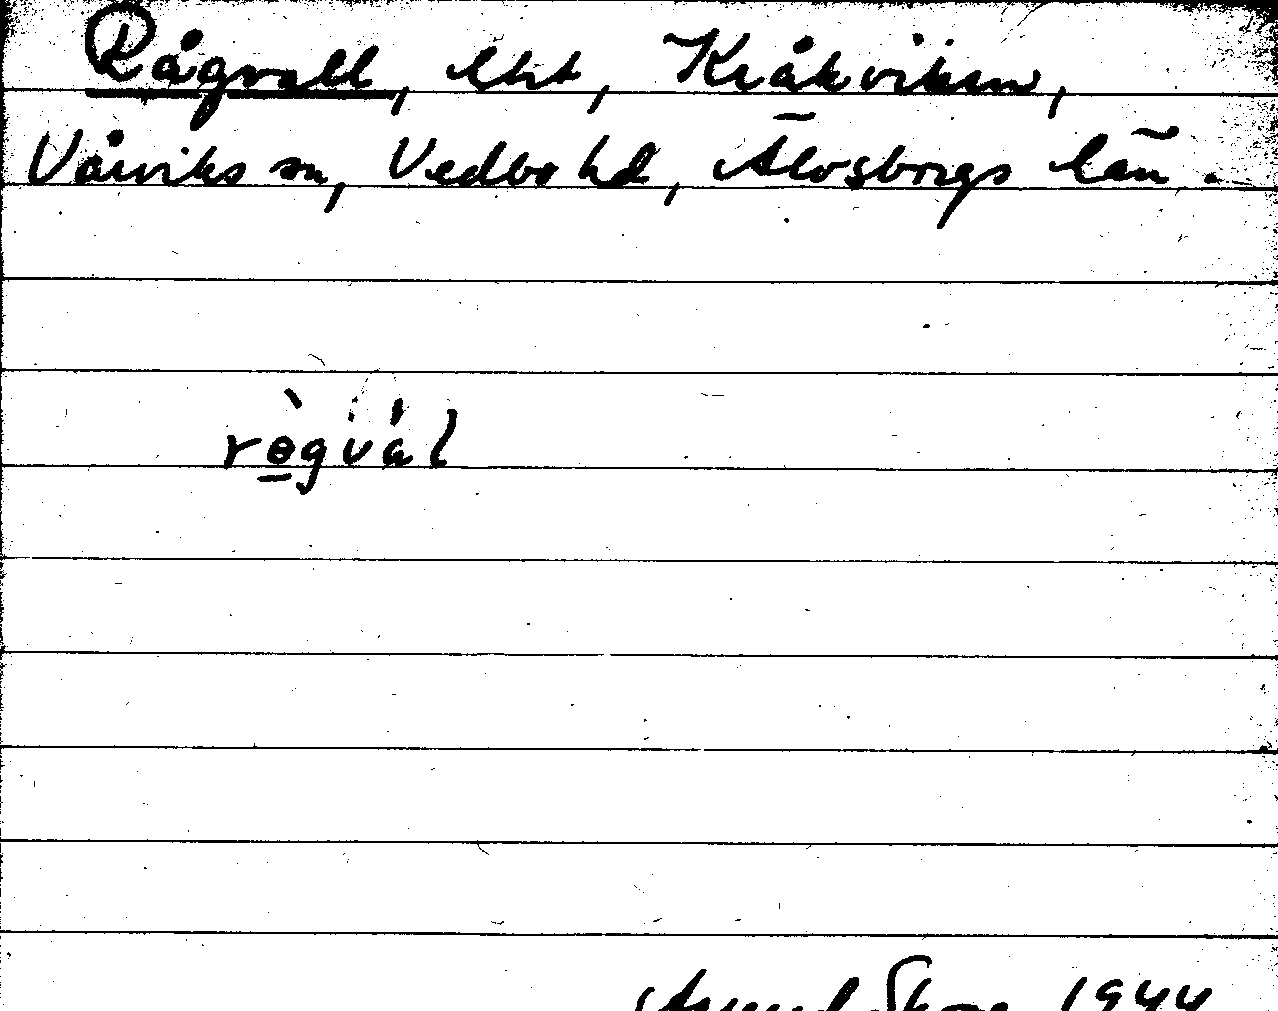 Rågvall, lht, Kråkviken,
Vårviks sn, Vedbo hd, Älvsborgs län.
rọ̀gvál
1944